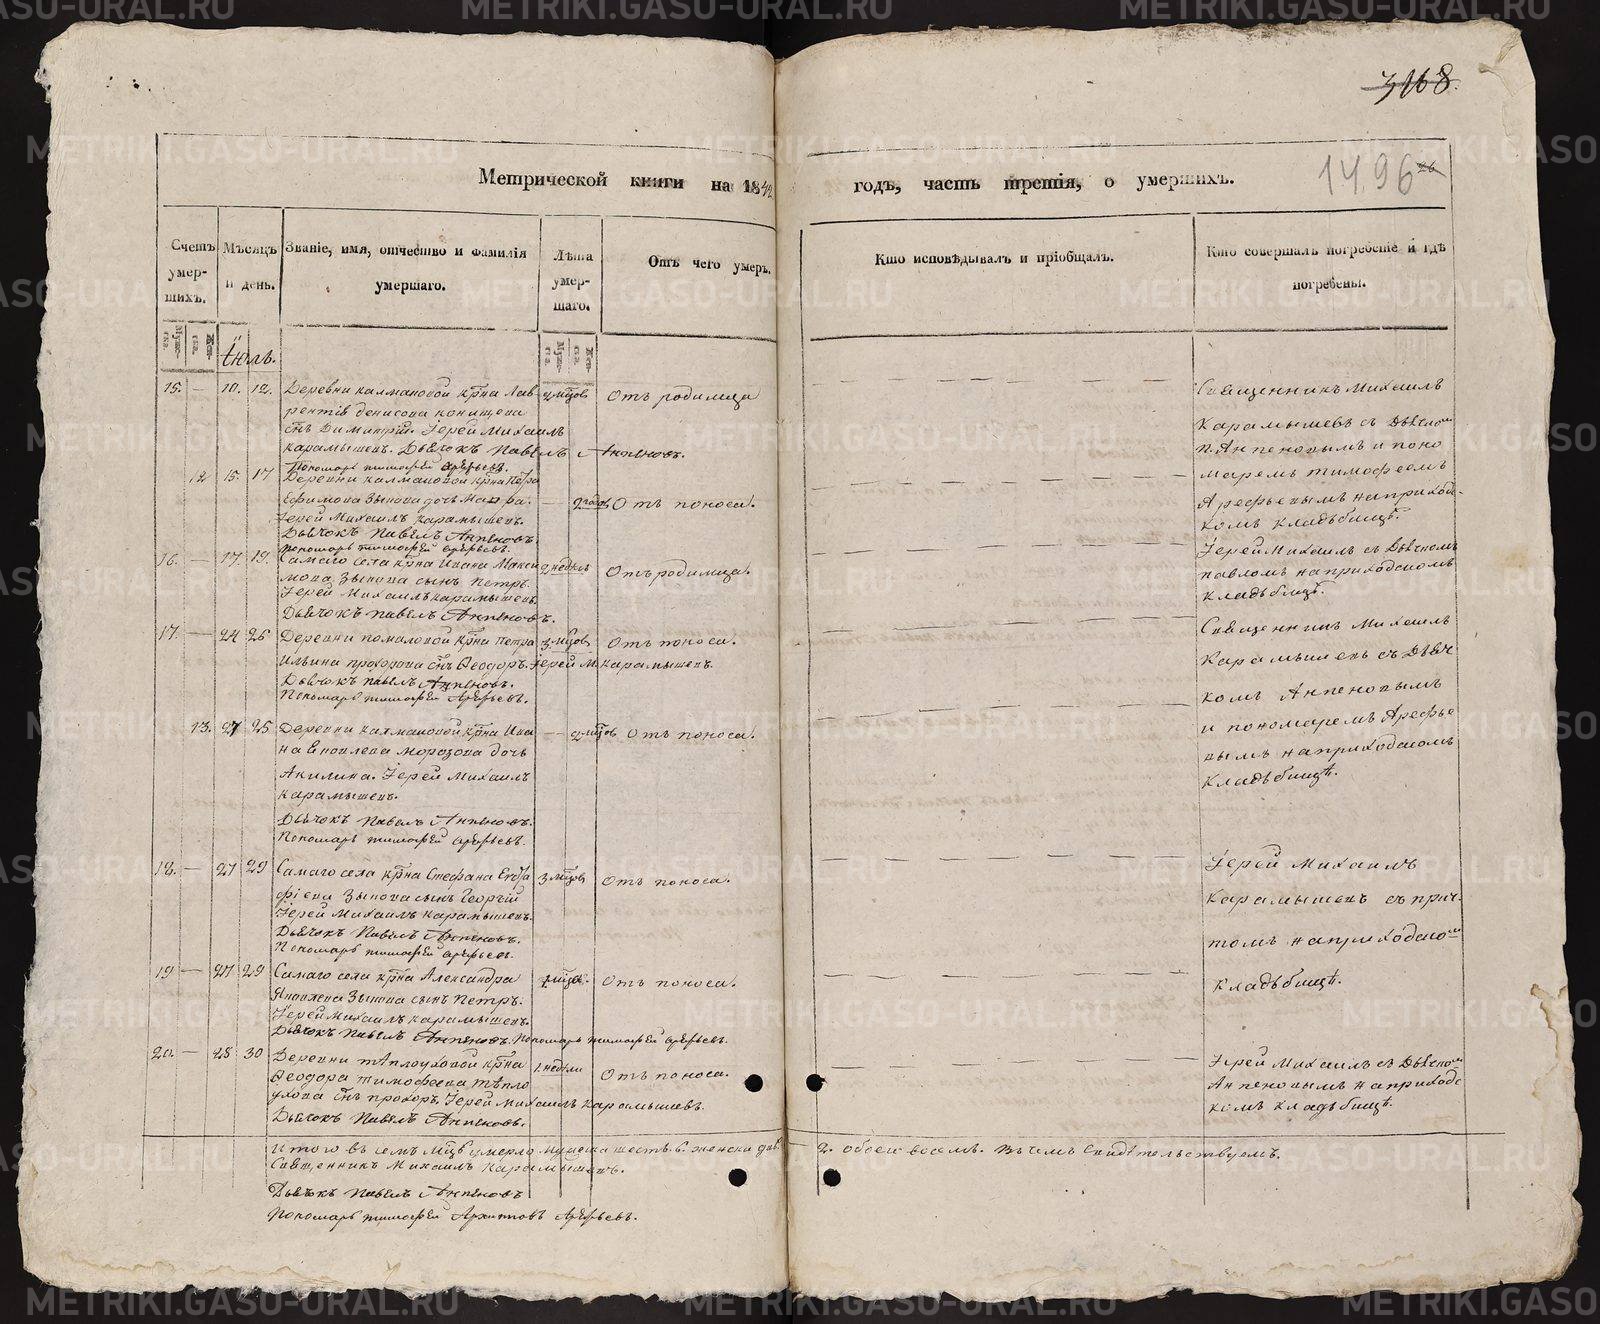 3168.
1496
Метрической книги на 1842
годъ, часть третія, о умершихъ.
Счетъ умер-шихъ.
Мѣсяцъ и день.
Званіе, имя, отчество и фамилія умершаго.
Лѣта умер-шаго.
Отъ чего умеръ.
Кто исповѣдывалъ и пріобщалъ.
Кто совершалъ погребеніе и гдѣ погребены.
Іюль.
15. — 10. 12. Деревни калмаковой кр҃на Лав
рентія денисова конищева
сн҃ъ Димитрій. Іерей Михаилъ
карамышевъ. Дьячокъ Павелъ
Пономарь тимофей арефьевъ.
2 мц҃овъ
Отъ родимца
Священникъ Михаилъ
Карамышевъ съ Дьячко
и поно
маремъ тимофеемъ
Арефьевымъ на приход
комъ кладьбищѣ.
12 15. 17 Деревни калмаковой кр҃на Петра
Ефимова Зыкова дочь
Іерей Михаилъ карамышевъ.
Дьячокъ Павелъ
Пономарь тимофей арефьевъ.
Отъ поноса.
16. — 17. 19. Самаго села кр҃на Ивана Макси
мова Зыкова сынъ Петръ.
Іерей Михаилъ карамышевъ.
Дьячокъ Павелъ
2 недѣль
Отъ родимца.
Іерей Михаилъ съ Дьячкомъ
павломъ на приходскомъ
кладьбищѣ.
17. — 24 26 Деревни кр҃на Петра
Ильина прохорова сн҃ъ Ѳеодоръ. Іерей М. Карамышевъ.
Дьячокъ павелъ
Пономарь тимофей Арефьевъ.
3 мц҃овъ
Отъ поноса.
Священникъ Михаилъ
Карамышевъ съ Дьяч
комъ
и пономаремъ Арефье
вымъ на приходскомъ
кладьбищѣ.
13. 27 25 Деревни калмаковой кр҃на Ива
на Яковлева морозова дочь
Акилина. Іерей Михаилъ
карамышевъ.
Дьячокъ Павелъ
Пономарь тимофей арефьевъ.
2 мц҃овъ Отъ поноса.
18. — 27 29 Самаго села кр҃на Стефана
Зыкова сынъ Георгій
Іерей Михаилъ карамышевъ.
Дьячокъ Павелъ
Пономарь тимофей арефьевъ.
3 мц҃овъ
Отъ поноса.
Іерей Михаилъ
Карамышевъ съ прич
томъ на приходско
кладьбищѣ.
19 — 27 29 Самаго села кр҃на Александра
Яковлева Зыкова сынъ Петръ.
Іерей Михаилъ карамышевъ.
Дьячокъ Павелъ Пономарь тимофей арефьевъ.
Отъ поноса.
20. — 28 30 Деревни тѣплоуховой кр҃на
Ѳеодора тимофеева тѣпло
ухова сн҃ъ прохоръ. Іерей Михаилъ Карамышевъ.
Дьячокъ Павелъ
недѣли
Отъ поноса.
Іерей Михаилъ съ Дьячко
на приходс
комъ кладьбищѣ.
Итого въ семъ мц҃ѣ умерло мужеска шесть. 6. женска двѣ. 2. обоего восемь. Въ чемъ свидѣтельствуемъ.
Священникъ Михаилъ Карамышевъ.
Дьячокъ Павелъ
Пономарь тимофей Арефьевъ.
METRIKI.GASO-URAL.RU